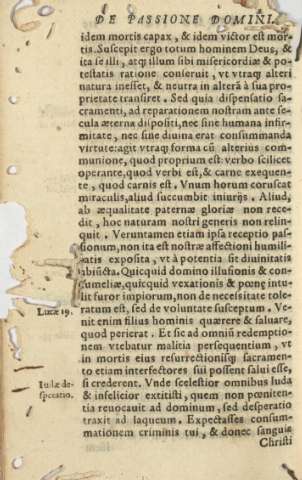 DE PASSIONE DOMINI.
idem mortis capax, & idem victor est mor-
tis. Suscepit ergo totum hominem Deus, &
ita se illi, atq́; illum sibi misericordiæ & po-
testatis ratione conseruit, vt vtraq́; alteri
natura inesset, & neutra in alterā à sua pro-
prietate transiret. Sed quia dispensatio sa-
cramenti, ad reparationem nostram ante se-
cula æterna dispositi, nec sine humana infir-
mitate, nec sine diuina erat consummanda
virtute: agit vtraq́; forma cū alterius com-
munione, quod proprium est: verbo scilicet
operante, quod verbi est, & carne exequen-
te, quod carnis est. Vnum horum coruscat
miraculis, aliud succumbit iniurijs. Aliud,
ab æqualitate paternæ gloriæ non rece-
dit, hoc naturam nostri generis non relin-
quit. Veruntamen etiam ipsa receptio pas-
sionum, non ita est nostræ affectioni humili-
atis exposita, vt à potentia sit diuinitatis
abiūcta. Quicquid domino illusionis & con-
tumeliæ, quicquid vexationis & pœnę intu-
lit furor impiorum, non de necessitate tole-
Lucæ 19. ratum est, sed de voluntate susceptum. Ve-
nit enim filius hominis quærere & saluare,
quod perierat. Et sic ad omniū redemptio-
nem vtebatur malitia persequentium, vt
in mortis eius resurrectionisq́; sacramen-
to etiam interfectores sui possent salui esse,
Iudæ de- si crederent. Vnde scelestior omnibus Iuda
speratio. & infelicior extitisti, quem non pœniten-
tia reuocauit ad dominum, sed desperatio
traxit ad laqueum. Expectasses consum-
mationem criminis tui, & donec sanguis
Christi